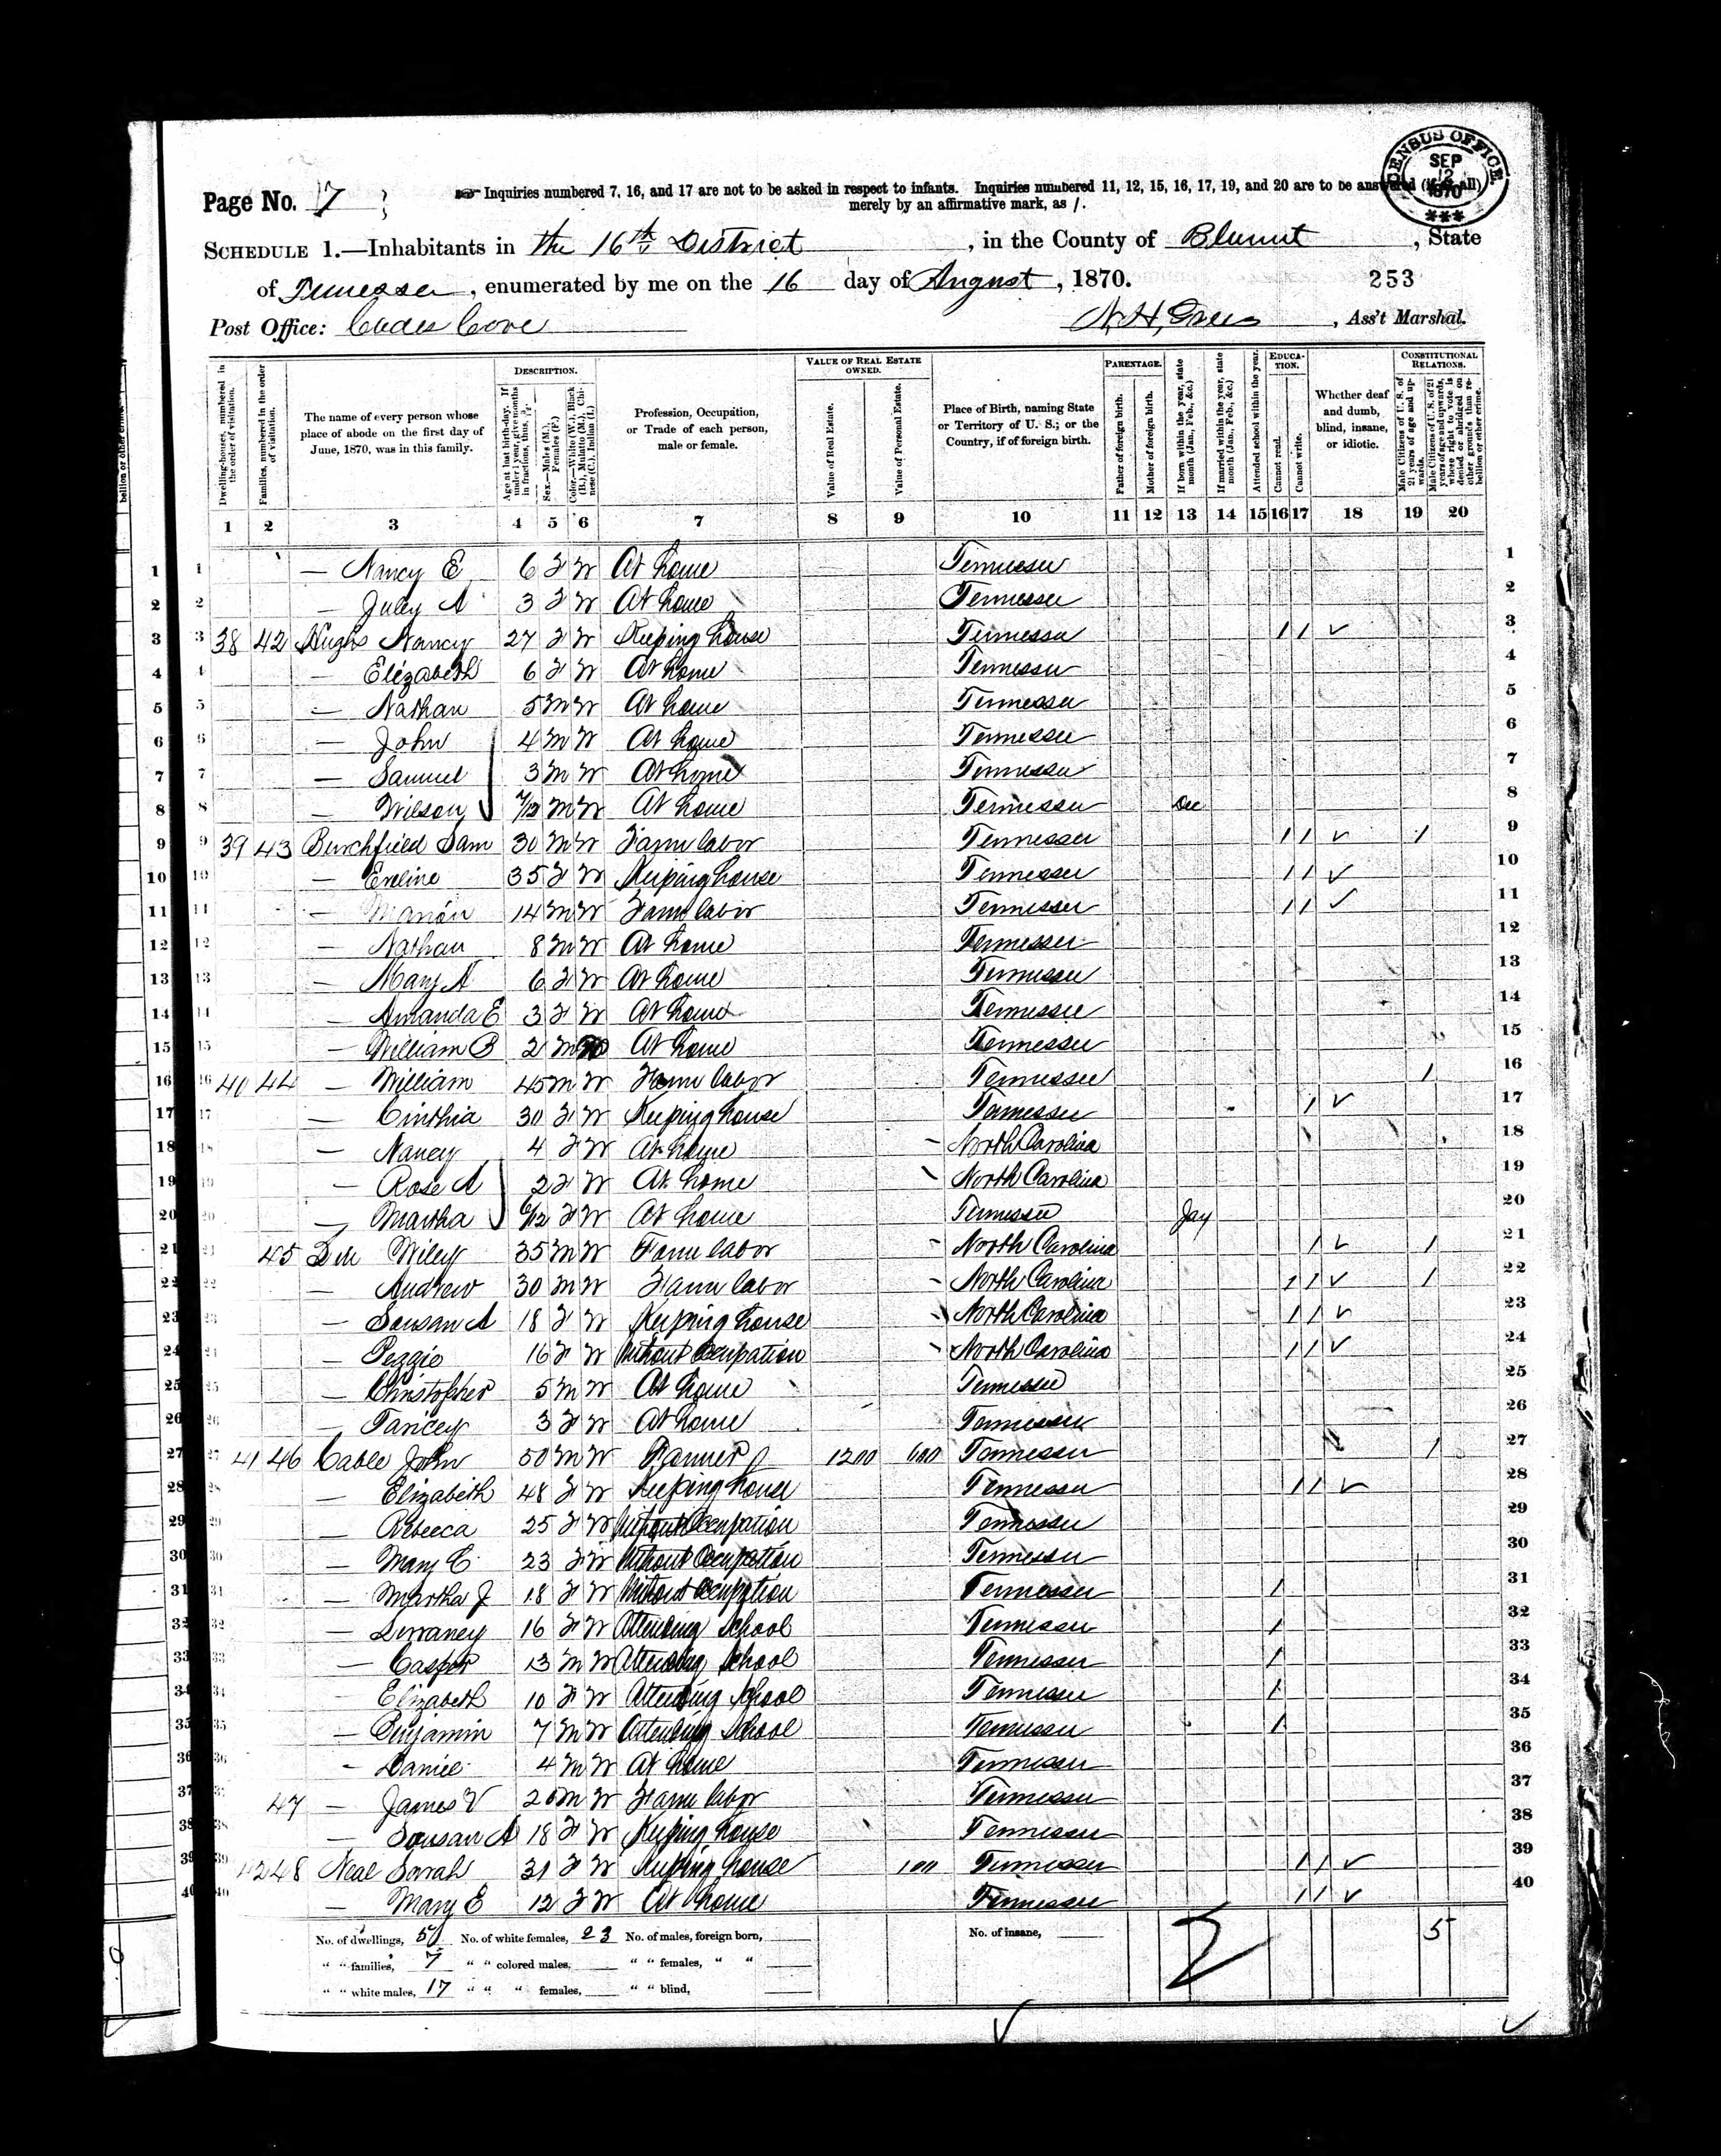 CENSUS OFFICE SEP 12 1870 ***
Page No. 7
Inquiries numbered 7, 16, and 17 are not to be asked in respect to infants. Inquiries numbered 11, 12, 15, 16, 17, 19, and 20 are to be answered (if at all)
merely by an affirmative mark, as /.
SCHEDULE 1.—Inhabitants in the 16th District, in the County of Blount, State
of Tennessee, enumerated by me on the 16 day of August, 1870. 253
Post Office: Cades Cove , Ass't Marshal.
DESCRIPTION. VALUE OF REAL ESTATE OWNED. PARENTAGE. EDUCATION. CONSTITUTIONAL RELATIONS.
Dwelling-houses, numbered in the order of visitation.
Families, numbered in the order of visitation.
The name of every person whose place of abode on the first day of June, 1870, was in this family.
Age at last birth-day. If under 1 year, give months in fractions, thus, 3/12.
Sex.—Males (M.), Females (F.)
Color.—White (W.), Black (B.), Mulatto (M.), Chinese (C.), Indian (I.)
Profession, Occupation, or Trade of each person, male or female.
Value of Real Estate.
Value of Personal Estate.
Place of Birth, naming State or Territory of U. S.; or the Country, if of foreign birth.
Father of foreign birth.
Mother of foreign birth.
If born within the year, state month (Jan., Feb., &c.)
If married within the year, state month (Jan., Feb., &c.)
Attended school within the year.
Cannot read.
Cannot write.
Whether deaf and dumb, blind, insane, or idiotic.
Male Citizens of U. S. of 21 years of age and upwards.
Male Citizens of U. S. of 21 years of age and upwards, whose right to vote is denied or abridged on other grounds than rebellion or other crime.
1 2 3 4 5 6 7 8 9 10 11 12 13 14 15 16 17 18 19 20
1 — Nancy E 6 F W At home Tennessee 1
2 — July A 3 F W At home Tennessee 2
3 38 42 Hughs Nancy 27 F W Keeping house Tennessee / / ✓ 3
4 — Elizabeth 6 F W At home Tennessee 4
5 — Nathan 5 M W At home Tennessee 5
6 — John 4 M W At home Tennessee 6
7 — Samuel 3 M W At home Tennessee 7
8 — Wilson 7/12 M W At home Tennessee Dec 8
9 39 43 Burchfield Sam 30 M W Farm labor Tennessee / / ✓ / 9
10 — Eveline 35 F W Keeping house Tennessee / / ✓ 10
11 — Marion 14 M W Farm labor Tennessee / / ✓ 11
12 — Nathan 8 M W At home Tennessee 12
13 — Mary A 6 F W At home Tennessee 13
14 — Amanda E 3 F W At home Tennessee 14
15 — William B 2 M W At home Tennessee 15
16 40 44 — William 45 M W Farm labor Tennessee / 16
17 — Cinthia 30 F W Keeping house Tennessee / ✓ 17
18 — Nancy 4 F W At home North Carolina 18
19 — Rose A 2 F W At home North Carolina 19
20 — Martha 6/12 F W At home Tennessee Jay 20
21 45 Wiley 35 M W Farm labor North Carolina / ✓ / 21
22 — Andrew 30 M W Farm labor North Carolina / / ✓ / 22
23 — Sousan A 18 F W Keeping house North Carolina / / ✓ 23
24 — Peggie 16 F W Without Occupation North Carolina / / ✓ 24
25 — Christopher 5 M W At home Tennessee 25
26 — 3 F W At home Tennessee 26
27 41 46 Cable John 50 M W Farmer 1200 600 Tennessee / 27
28 — Elizabeth 48 F W Keeping house Tennessee / / ✓ 28
29 — Rebecca 25 F W Without Occupation Tennessee 29
30 — Mary C 23 F W Without Occupation Tennessee 30
31 — Martha J 18 F W Without Occupation Tennessee / 31
32 — 16 F W Attending School Tennessee / 32
33 — Casper 13 M W Attending School Tennessee / 33
34 — Elizabeth 10 F W Attending School Tennessee / 34
35 — Benjamin 7 M W Attending School Tennessee / 35
36 — Daniel 4 M W At home Tennessee 36
37 47 — James V 20 M W Farm labor Tennessee 37
38 — Sousan A 18 F W Keeping house Tennessee 38
39 42 48 Neal Sarah 31 F W Keeping house 100 Tennessee / / ✓ 39
40 — Mary E 12 F W At home Tennessee / / ✓ 40
No. of dwellings, 5 No. of white females, 23 No. of males, foreign born, No. of insane, 5
" " families, 7 " " colored males, " " females, " "
" " white males, 17 " " " females, " " blind,